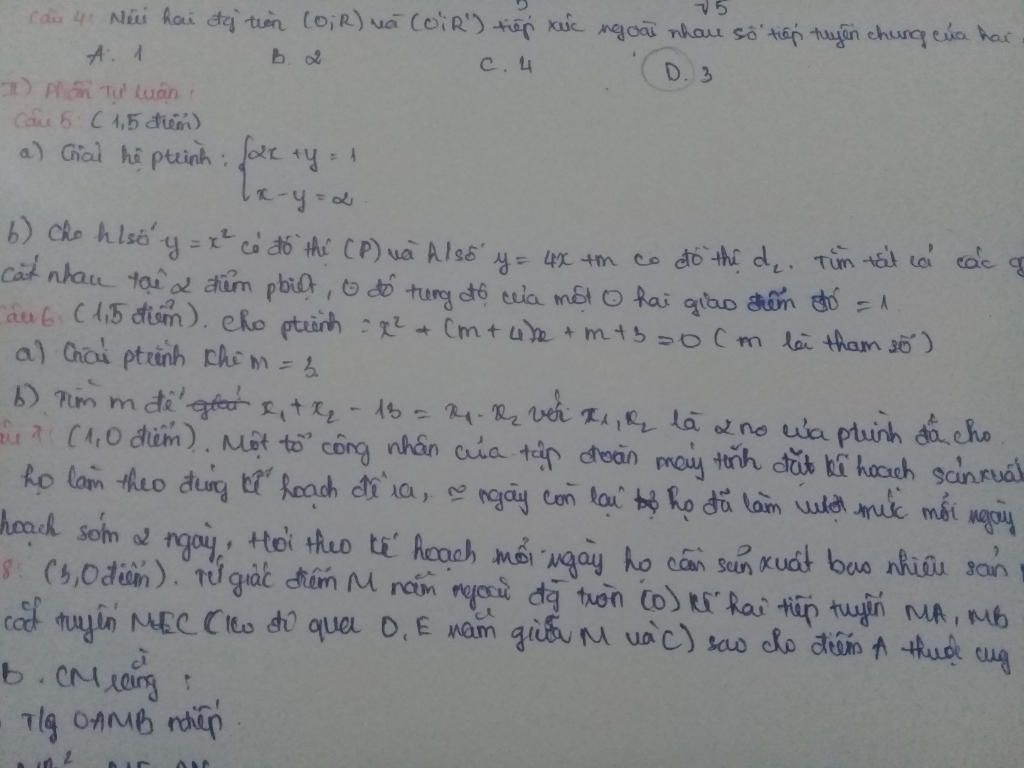 √5
Câu 4: Nếu hai đg tròn (O;R) và (O';R') tiếp xúc ngoài nhau số tiếp tuyến chung của hai
A. 1 B. 2 C. 4 D. 3
II) Phần Tự luận:
Câu 5: (1,5 điểm)
a) Giải hệ ptrình: { 2x + y = 1
x - y = 2
b) Cho h/số y = x² có đồ thị (P) và h/số y = 4x + m có đồ thị d₂. Tìm tất cả các g
cắt nhau tại 2 điểm pbiệt, đó tung độ của một hai giao điểm đó = 1
Câu 6: (1,5 điểm). Cho ptrình: x² + (m + 4)x + m + 3 = 0 (m là tham số)
a) Giải ptrình khi m = 3
b) Tìm m để x₁ + x₂ - 13 = x₁.x₂ với x₁, x₂ là 2 no của ptrình đã cho
Câu 7: (1,0 điểm). Một tổ công nhân của tập đoàn máy tính đặt kế hoạch sản xuất
họ làm theo đúng kế hoạch đề ra, ngày còn lại họ đã làm vượt mức mỗi ngày
hoạch sớm 2 ngày, Hỏi theo kế hoạch mỗi ngày họ cần sản xuất bao nhiêu sản
8: (3,0 điểm). Từ điểm M nằm ngoài đg tròn (O) kẻ hai tiếp tuyến MA, MB
cát tuyến MEC (ko đi qua O, E nằm giữa M và C) sao cho điểm A thuộc cug
B. CM rằng:
T/g OAMB ntiếp